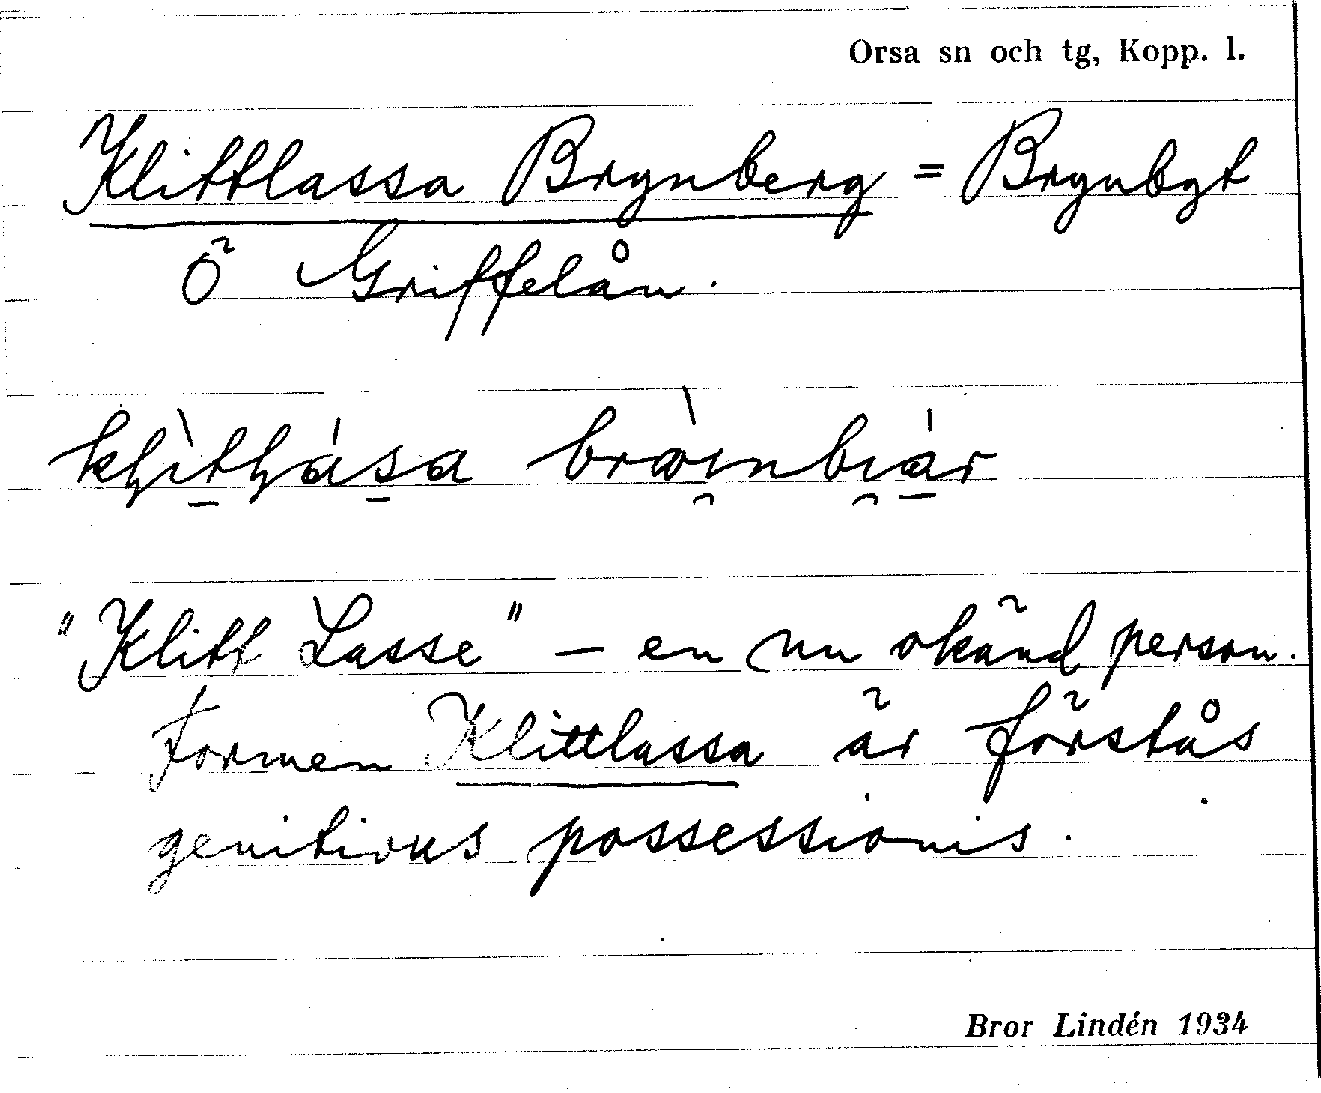 Orsa sn och tg, Kopp. l.
Klittlassa Brynberg = Brynbgt
Ö Griffelån.
"Klitt Lasse" – en nu okänd person.
Formen Klittlassa är förstås
genitivus possessionis.
Bror Lindén 1934